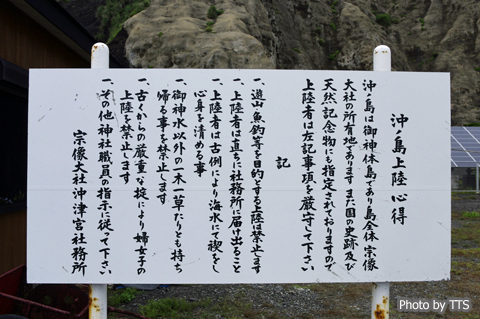 沖ノ島上陸心得
沖ノ島は御神体島であり島全体宗像
大社の所有地であります また国の史跡及び
天然記念物にも指定されておりますので
上陸者は左記事項を厳守して下さい
記
一、遊山魚釣等を目的とする上陸は禁止します
一、上陸者は直ちに社務所に届け出ること
一、上陸者は古例により海水にて禊をし
心身を清める事
一、御神水以外の一木一草たりとも持ち
帰る事を禁止します
一、古くからの厳重な掟により婦女子の
上陸を禁止します
一、その他神社職員の指示に従って下さい
宗像大社沖津宮社務所
Photo by TTS